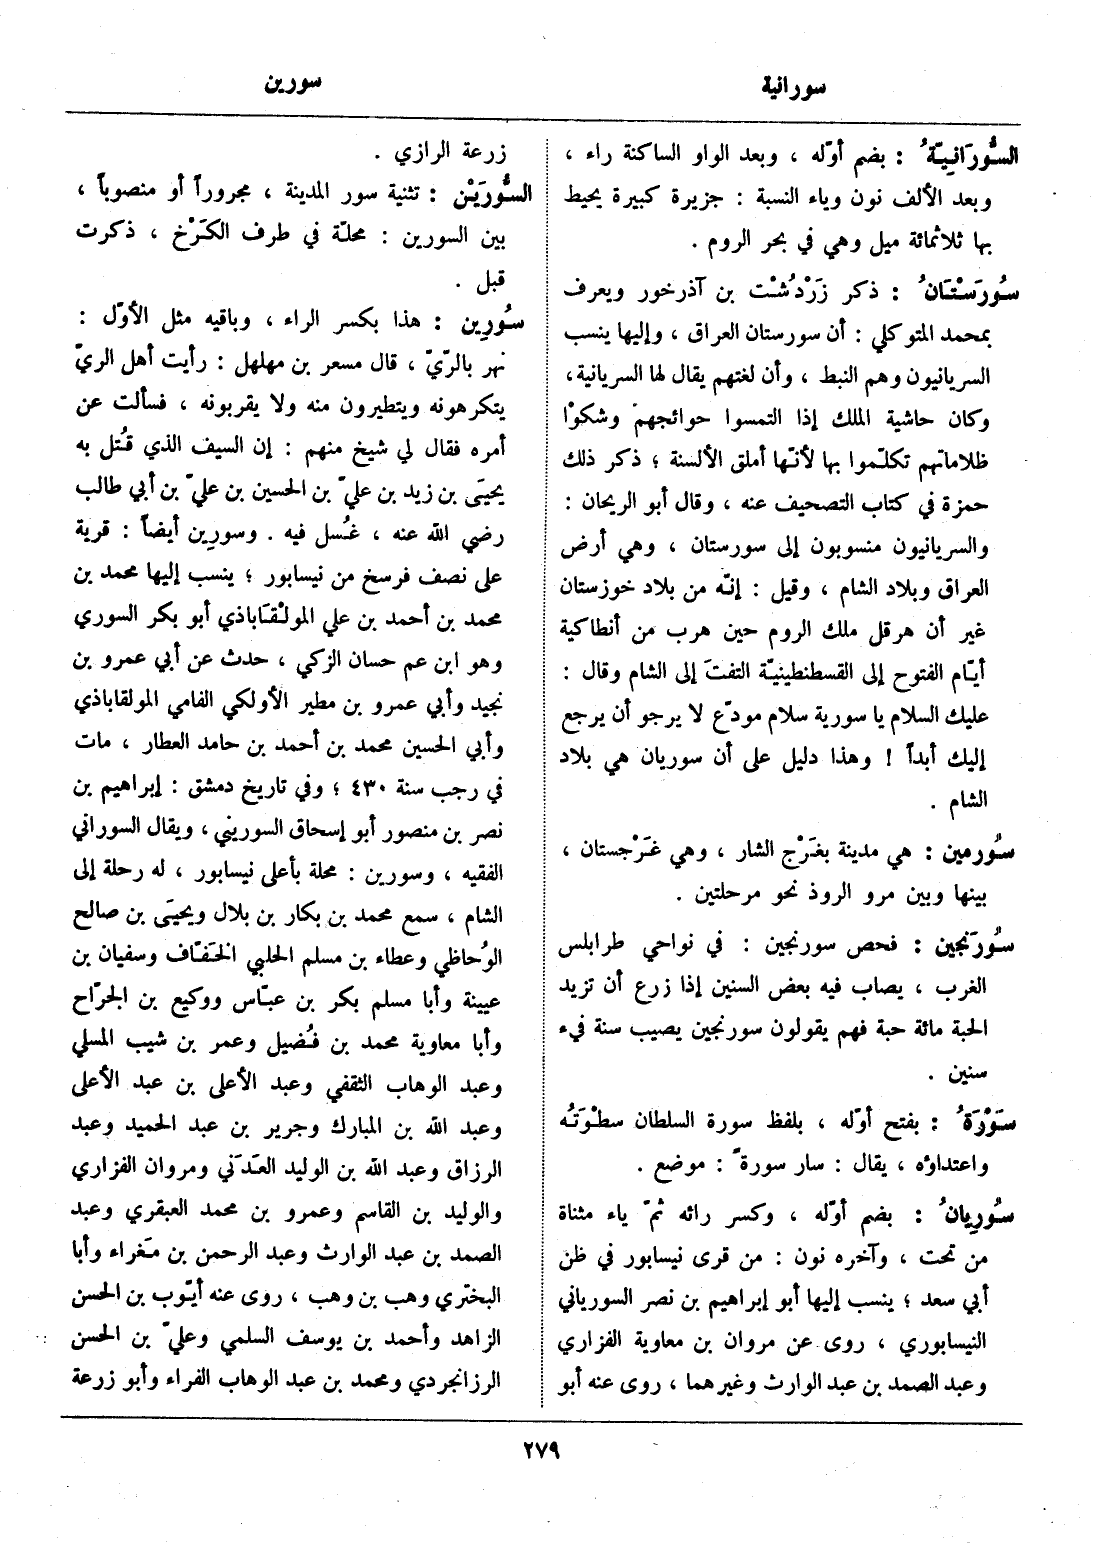 سورانية
سورين
السُّورَانِيّةُ : بضم أوّله ، وبعد الواو الساكنة راء ،
وبعد الألف نون وياء النسبة : جزيرة كبيرة يحيط
بها ثلاثمائة ميل وهي في بحر الروم .
سُورَسْتَانُ : ذكر زَرْدُشْت بن آذرخور ويعرف
بمحمد المتوكلي : أن سورستان العراق ، وإليها ينسب
السريانيون وهم النبط ، وأن لغتهم يقال لها السريانية ،
وكان حاشية الملك إذا التمسوا حوائجهم وشكوْا
ظلاماتهم تكلّموا بها لأنّها أملق الألسنة ؛ ذكر ذلك
حمزة في كتاب التصحيف عنه ، وقال أبو الريحان :
والسريانيون منسوبون إلى سورستان ، وهي أرض
العراق وبلاد الشام ، وقيل : إنّه من بلاد خوزستان
غير أن هرقل ملك الروم حين هرب من أنطاكية
أيّام الفتوح إلى القسطنطينيّة التفتَ إلى الشام وقال :
عليك السلام يا سورية سلام مودّع لا يرجو أن يرجع
إليك أبداً ! وهذا دليل على أن سوريان هي بلاد
الشام .
سُورمين : هي مدينة بغَرْج الشار ، وهي غَرْجستان ،
بينها وبين مرو الروذ نحو مرحلتين .
سُورَنجين : فحص سورنجين : في نواحي طرابلس
الغرب ، يصاب فيه بعض السنين إذا زرع أن تزيد
الحبة مائة حبة فهم يقولون سورنجين يصيب سنة في
سنين .
سَوْرَةُ : بفتح أوّله ، بلفظ سورة السلطان سطْوَتُه
واعتداؤه ، يقال : سار سورةً : موضع .
سُورِيانُ : بضم أوّله ، وكسر رائه ثمّ ياء مثناة
من تحت ، وآخره نون : من قرى نيسابور في ظن
أبي سعد ؛ ينسب إليها أبو إبراهيم بن نصر السورياني
النيسابوري ، روى عن مروان بن معاوية الفزاري
وعبد الصمد بن عبد الوارث وغيرهما ، روى عنه أبو
زرعة الرازي .
السُّورَيْن : تثنية سور المدينة ، مجروراً أو منصوباً ،
بين السورين : محلّة في طرف الكَرْخ ، ذكرت
قبل .
سُورِين : هذا بكسر الراء ، وباقيه مثل الأوّل :
نهر بالرّيّ ، قال مسعر بن مهلهل : رأيت أهل الريّ
يتكرهونه ويتطيرون منه ولا يقربونه ، فسألت عن
أمره فقال لي شيخ منهم : إن السيف الذي قُتل به
يحيَى بن زيد بن عليّ بن الحسين بن عليّ بن أبي طالب
رضي الله عنه ، غُسل فيه . وسورين أيضاً : قرية
على نصف فرسخ من نيسابور ؛ ينسب إليها محمد بن
محمد بن أحمد بن علي المولْقَاباذي أبو بكر السوري
وهو ابن عم حسان الزكي ، حدث عن أبي عمرو بن
نجيد وأبي عمرو بن مطير الأولكي الفامي المولقاباذي
وأبي الحسين محمد بن أحمد بن حامد العطار ، مات
في رجب سنة ٤٣٠ ؛ وفي تاريخ دمشق : إبراهيم بن
نصر بن منصور أبو إسحاق السوريني ، ويقال السوراني
الفقيه ، وسورين : محلة بأعلى نيسابور ، له رحلة إلى
الشام ، سمع محمد بن بكار بن بلال ويحيَى بن صالح
الوُحاظي وعطاء بن مسلم الحلبي الخَفّاف وسفيان بن
عيينة وأبا مسلم بكر بن عبّاس ووكيع بن الجرّاح
وأبا معاوية محمد بن فُضيل وعمر بن شيب المسلي
وعبد الوهاب الثقفي وعبد الأعلى بن عبد الأعلى
وعبد الله بن المبارك وجرير بن عبد الحميد وعبد
الرزاق وعبد الله بن الوليد العَدَني ومروان الفزاري
والوليد بن القاسم وعمرو بن محمد العبقري وعبد
الصمد بن عبد الوارث وعبد الرحمن بن مَغراء وأبا
البختري وهب بن وهب ، روى عنه أيّوب بن الحسن
الزاهد وأحمد بن يوسف السلمي وعليّ بن الحسن
الرزانجردي ومحمد بن عبد الوهاب الفراء وأبو زرعة
٢٧٩